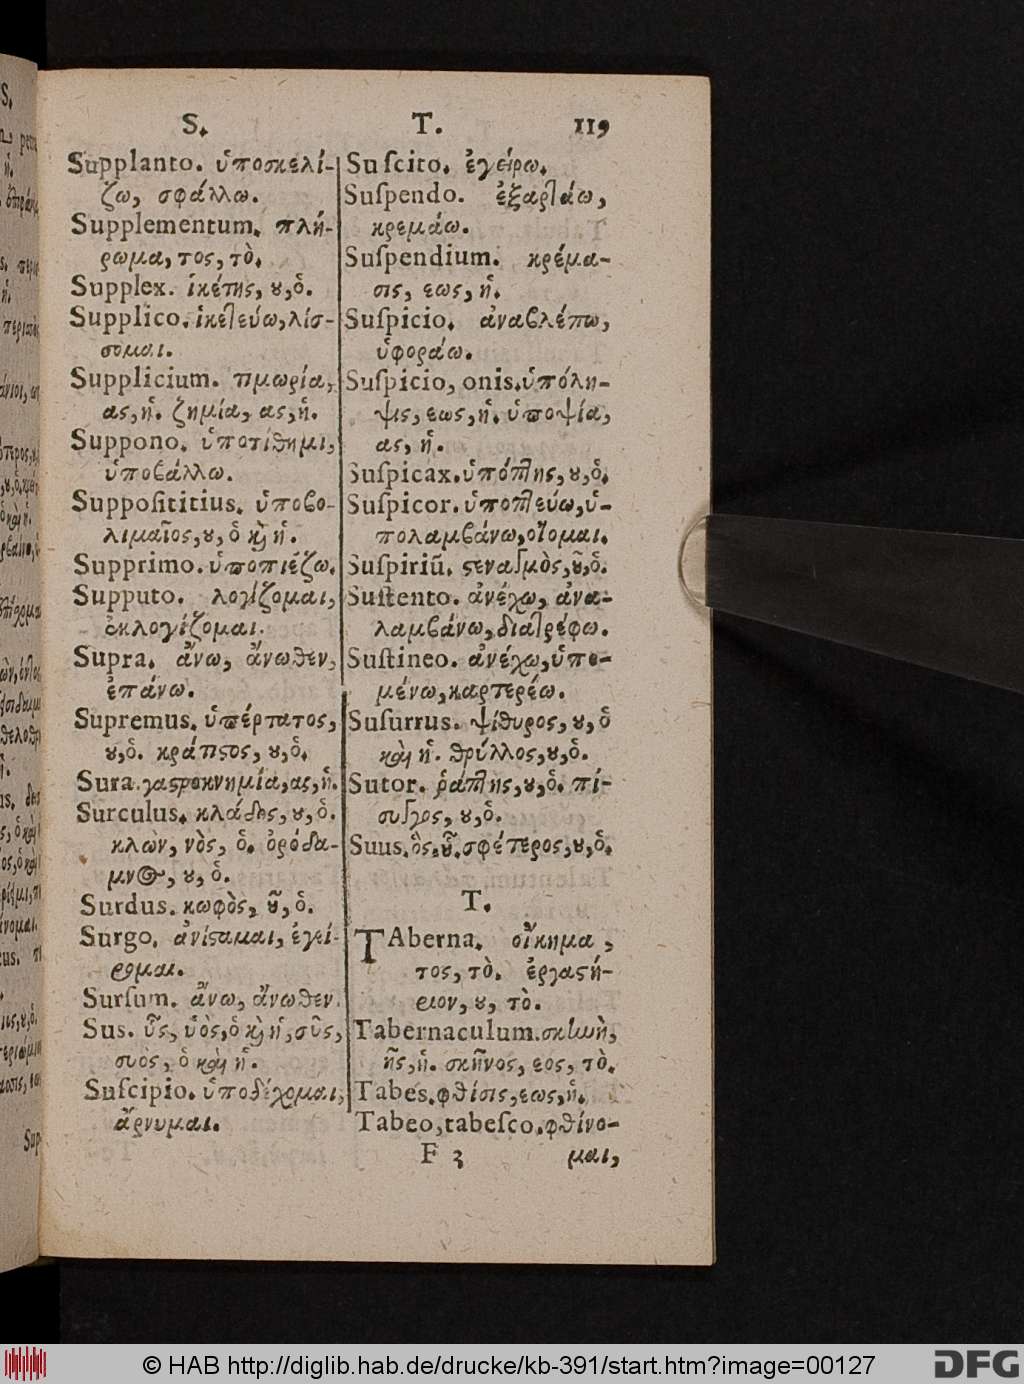 S. T. 119
Supplanto. ὑποσκελί-
ζω, σφάλλω.
Supplementum. πλή-
ρωμα, τος, τὸ.
Supplex. ἱκέτης, ȣ, ὁ.
Supplico. ἱκετεύω, λίσ-
σομαι.
Supplicium. τιμωρία,
ας, ἡ. ζημία, ας, ἡ.
Suppono. ὑποτίθημι,
ὑποβάλλω.
Supposititius. ὑποβο-
λιμαῖος, ȣ, ὁ ϗ ἡ.
Supprimo. ὑποπιέζω.
Supputo. λογίζομαι,
ἐκλογίζομαι.
Supra. ἄνω, ἄνωθεν,
ἐπάνω.
Supremus. ὑπέρτατος,
ȣ, ὁ. κράτιϛος, ȣ, ὁ.
Sura. γαϛροκνημία, ας, ἡ.
Surculus. κλάδος, ȣ, ὁ.
κλὼν, νὸς, ὁ. ὀρόδα-
μνος, ȣ, ὁ.
Surdus. κωφὸς, ȣ͂, ὁ.
Surgo. ἀνίϛαμαι, ἐγεί-
ρομαι.
Surſum. ἄνω, ἄνωθεν.
Sus. ὗς, ὑὸς, ὁ ϗ ἡ, σῦς,
συὸς, ὁ καὶ ἡ.
Suſcipio. ὑποδέχομαι,
ἄρνυμαι.
Suſcito. ἐγείρω.
Suſpendo. ἐξαρτάω,
κρεμάω.
Suſpendium. κρέμα-
σις, εως, ἡ.
Suſpicio. ἀναβλέπω,
ὑφοράω.
Suſpicio, onis. ὑπόλη-
ψις, εως, ἡ. ὑποψία,
ας, ἡ.
Suſpicax. ὑπόπτης, ȣ, ὁ.
Suſpicor. ὑποπτεύω, ὑ-
πολαμβάνω, οἴομαι.
Suſpiriũ. ϛεναγμὸς, ȣ͂, ὁ.
Suſtento. ἀνέχω, ἀνα-
λαμβάνω, διατρέφω.
Suſtineo. ἀνέχω, ὑπο-
μένω, καρτερέω.
Suſurrus. ψίθυρος, ȣ, ὁ
καὶ ἡ. θρύλλος, ȣ, ὁ.
Sutor. ῥάπτης, ȣ, ὁ. πί-
συγγος, ȣ, ὁ.
Suus. ὃς, ȣ͂. σφέτερος, ȣ, ὁ.
T.
TAberna. οἴκημα,
τος, τὸ. ἐργαϛή-
ριον, ȣ, τὸ.
Tabernaculum. σκηνὴ,
ῆς, ἡ. σκῆνος, εος, τὸ.
Tabes. φθίσις, εως, ἡ.
Tabeo, tabeſco. φθίνο-
F 3 μαι,
© HAB http://diglib.hab.de/drucke/kb-391/start.htm?image=00127
DFG